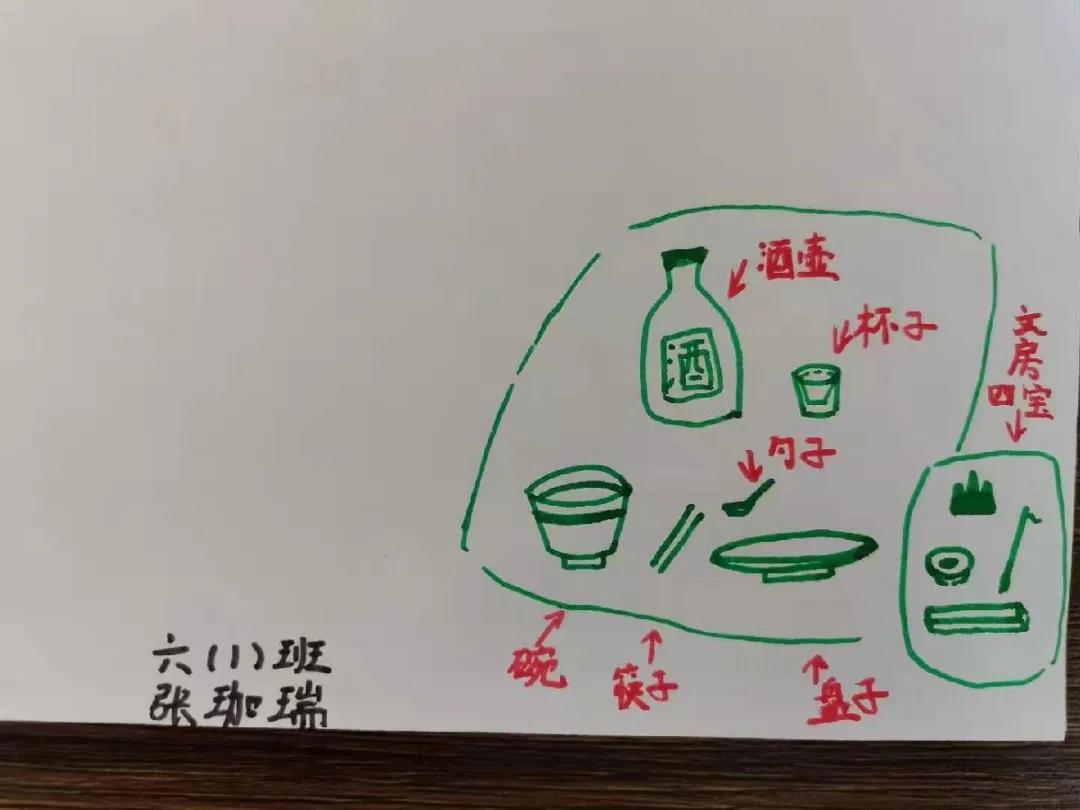 酒壶
酒
杯子
文房
四宝
勺子
碗
筷子
盘子
六(1)班
张珈瑞